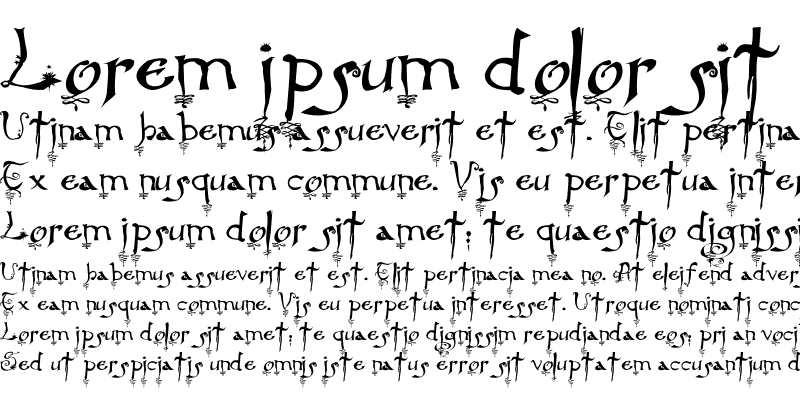 Lorem ipsum dolor sit
Utinam habemus assueverit et est. Elit pertina
Ex eam nusquam commune. Vis eu perpetua inter
Lorem ipsum dolor sit amet; te quaestio dignissi
Utinam habemus assueverit et est. Elit pertinacia mea no. At eleifend adver
Ex eam nusquam commune. Vis eu perpetua interesset. Utroque nominati conc
Lorem ipsum dolor sit amet; te quaestio dignissim repudiandae eos; pri an voci
Sed ut perspiciatis unde omnis iste natus error sit voluptatem accusantium d